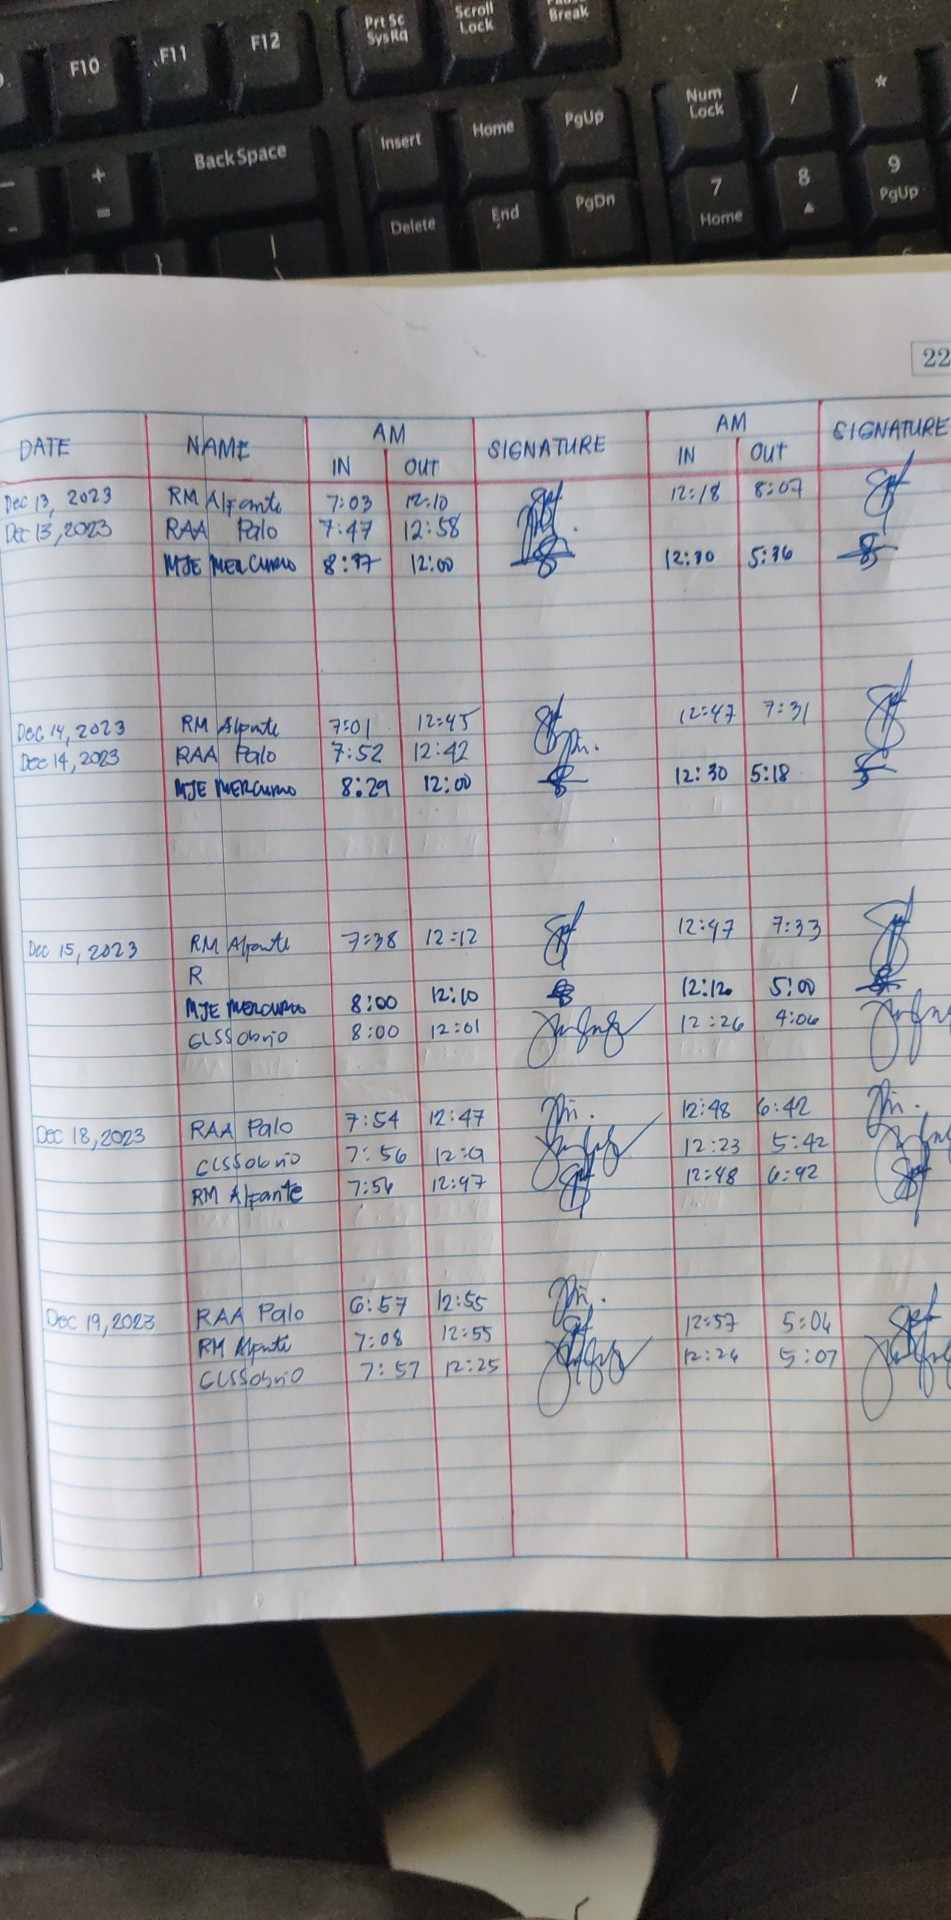 F10 F11 F12 Prt Sc SysRq Scroll Lock Break
BackSpace Insert Home PgUp Num Lock / *
Delete End PgDn 7 Home 8 9 PgUp
22
DATE NAME AM SIGNATURE AM SIGNATURE
IN OUT IN OUT
Dec 13, 2023 RM Alpante 7:03 12:10 12:18 8:07
Dec 13, 2023 RAA Palo 7:47 12:58
MJE MERCURIO 8:37 12:00 12:30 5:36
Dec 14, 2023 RM Alpante 7:01 12:45 12:47 7:31
Dec 14, 2023 RAA Palo 7:52 12:42
MJE MERCURIO 8:29 12:00 12:30 5:18
Dec 15, 2023 RM Alpante 7:38 12:12 12:47 7:33
R
MJE MERCURIO 8:00 12:10 12:12 5:00
CLSSobrio 8:00 12:01 12:26 4:06
Dec 18, 2023 RAA Palo 7:54 12:47 12:48 6:42
CLSSobrio 7:56 12:23 5:42
RM Alpante 7:56 12:47 12:48 6:42
Dec 19, 2023 RAA Palo 6:57 12:55
RM Alpante 7:08 12:55 12:57 5:04
CLSSobrio 7:57 12:25 12:26 5:07